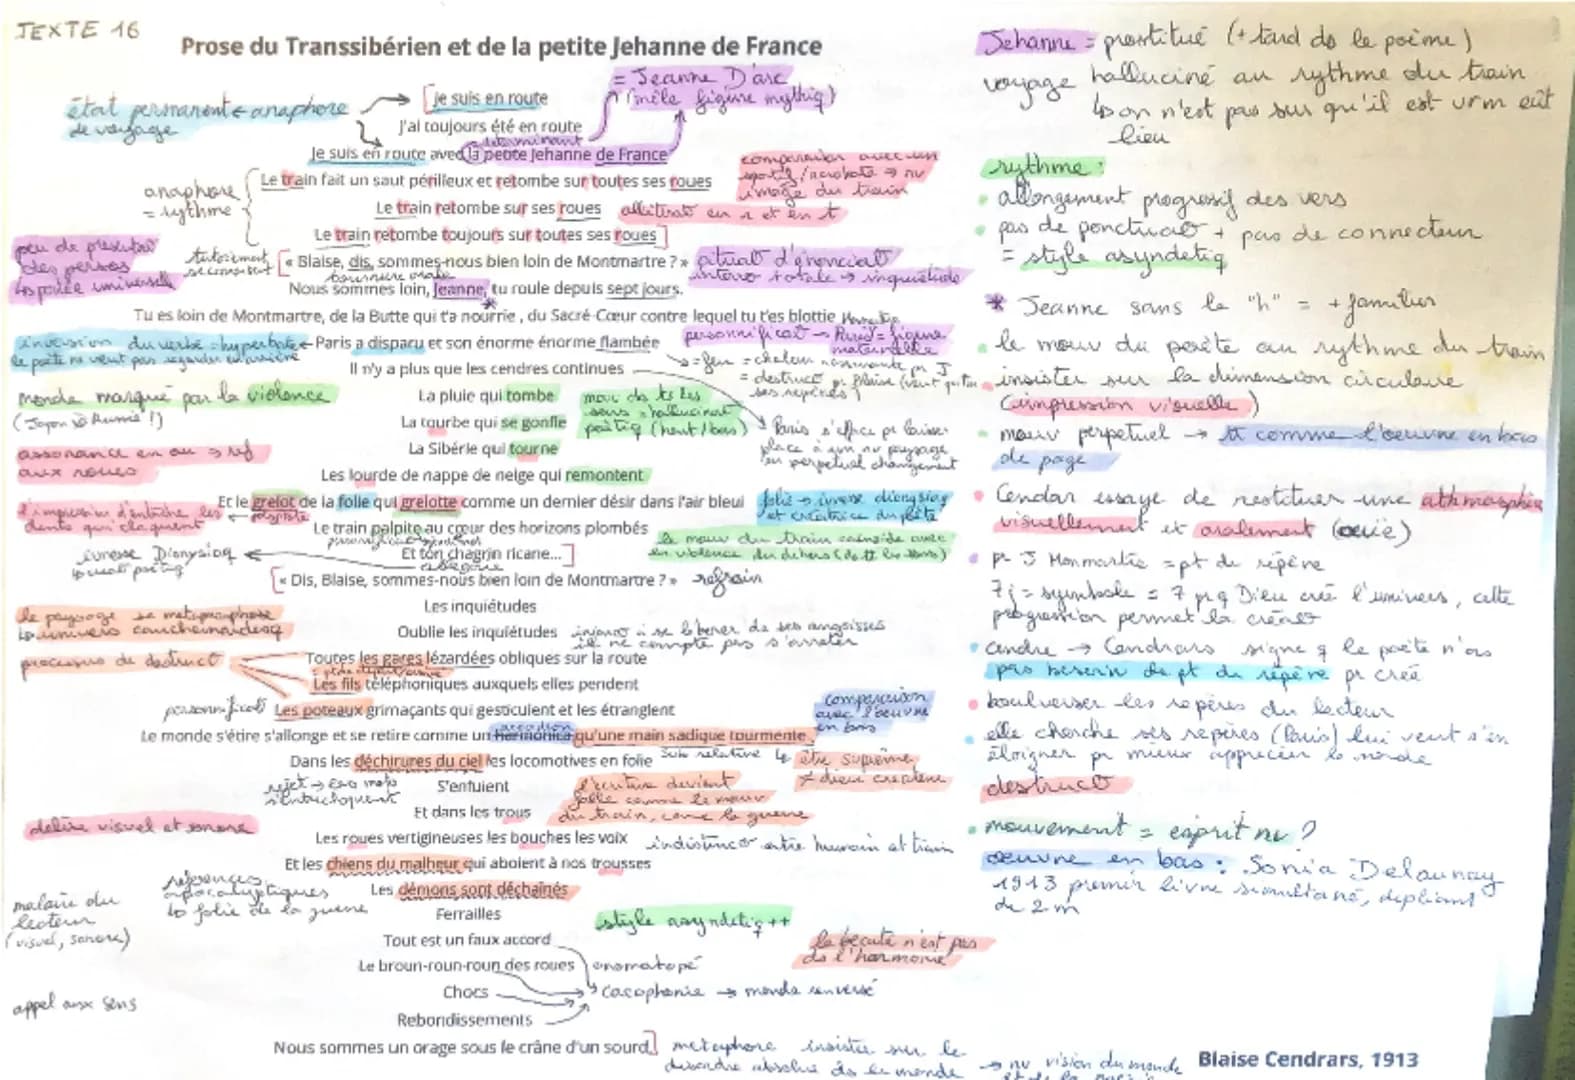 TEXTE 16
Prose du Transsibérien et de la petite Jehanne de France
= Jeanne D'arc
(mêle figure mythiq)
état permanent ← anaphore
de voyage
je suis en route
J'ai toujours été en route
déterminant
Je suis en route avec la petite Jehanne de France
anaphore
= rythme
Le train fait un saut périlleux et retombe sur toutes ses roues
Le train retombe sur ses roues
Le train retombe toujours sur toutes ses roues
comparaison avec un
sportif / acrobate → nv
image du train
allitérat en r et en t
peu de présentat
des persos
↳ portée universelle
tutoiement
se connaissent
« Blaise, dis, sommes-nous bien loin de Montmartre ? »
tournure orale
situat d'énonciat
interro totale → inquiétude
Nous sommes loin, Jeanne, tu roule depuis sept jours.
*
Tu es loin de Montmartre, de la Butte qui t'a nourrie , du Sacré-Cœur contre lequel tu t'es blottie
personnificat → Paris = figure
maternelle
inversion du verbe = hyperbate ← Paris a disparu et son énorme énorme flambée
le poète ne veut pas regarder en arrière
Il n'y a plus que les cendres continues
→ = feu = chaleur rassurante pr J
= destruct pr Blaise (veut quitter
ses repères)
monde marqué par la violence
(Japon Russie !)
La pluie qui tombe
La tourbe qui se gonfle
La Sibérie qui tourne
mouv ds ts les
sens = hallucinat
poétiq (haut / bas)
Paris s'efface pr laisser
place à un nv paysage
en perpétuel changement
assonance en ou → ref
aux roues
Les lourde de nappe de neige qui remontent
Et le grelot de la folie qui grelotte comme un dernier désir dans l'air bleui
l'impression d'entendre les
dents qui claquent
polyptote
folie → ivresse dionysiaq
et créatrice du poète
Le train palpite au cœur des horizons plombés
Et ton chagrin ricane...
allégorie
le mouv du train coïncide avec
la violence du dehors (ds tt les sens)
ivresse Dionysiaq
↳ créat poétiq
« Dis, Blaise, sommes-nous bien loin de Montmartre ? » refrain
Les inquiétudes
Oublie les inquiétudes
injonct à se libérer de ses angoisses
il ne compte pas s'arrêter
le paysage se métamorphose
↳ univers cauchemardesq
processus de destruct
Toutes les gares lézardées obliques sur la route
Les fils téléphoniques auxquels elles pendent
personnificat Les poteaux grimaçants qui gesticulent et les étranglent
comparaison
avec l'oeuvre
en bas
accordéon
Le monde s'étire s'allonge et se retire comme un harmonica qu'une main sadique tourmente
Dans les déchirures du ciel les locomotives en folie
Sub relative ↳ être suprême
≠ dieu createur
rejet →
s'entrechoquent
S'enfuient
Et dans les trous
l'écriture devient
folle comme le mouv
du train, come la guerre
délire visuel et sonore
Les roues vertigineuses les bouches les voix
indistinct entre humain et train
Et les chiens du malheur qui aboient à nos trousses
références
apocalyptiques
↳ folie de la guerre
Les démons sont déchaînés
malaise du
lecteur
(visuel, sonore)
Ferrailles
style asyndétiq ++
Tout est un faux accord
Le broun-roun-roun des roues
onomatopé
la beauté n'est pas
ds l'harmonie
Chocs
cacophonie → monde renversé
appel aux sens
Rebondissements
Nous sommes un orage sous le crâne d'un sourd
métaphore insister sur le
désordre absolue ds le monde
→ nv vision du monde
Blaise Cendrars, 1913
Jehanne = prostitué (+ tard ds le poème)
voyage halluciné au rythme du train
↳ on n'est pas sur qu'il est vrm eût
lieu
rythme :
allongement progressif des vers
pas de ponctuat + pas de connecteur
= style asyndétiq
* Jeanne sans le "h" = + familier
le mouv du poète au rythme du train
insister sur la dimension circulaire
(impression visuelle)
mouv perpétuel → tt comme l'oeuvre en bas
de page
Cendar essaye de restituer une athmosphère
visuellement et oralement (ouïe)
pr J Monmartre = pt de repère
7j = symbole = 7 pr q Dieu créé l'univers, cette
progression permet la créat
cendre → Cendrars signe q le poète n'as
pas besoin de pt de repère pr créé
boulverser les repères du lecteur
elle cherche ses repères (Paris) lui veut s'en
éloigner pr mieux apprécier le monde
destruct
mouvement = esprit nv ?
oeuvre en bas : Sonia Delaunay
1913 premier livre simultané, dépliant
de 2 m